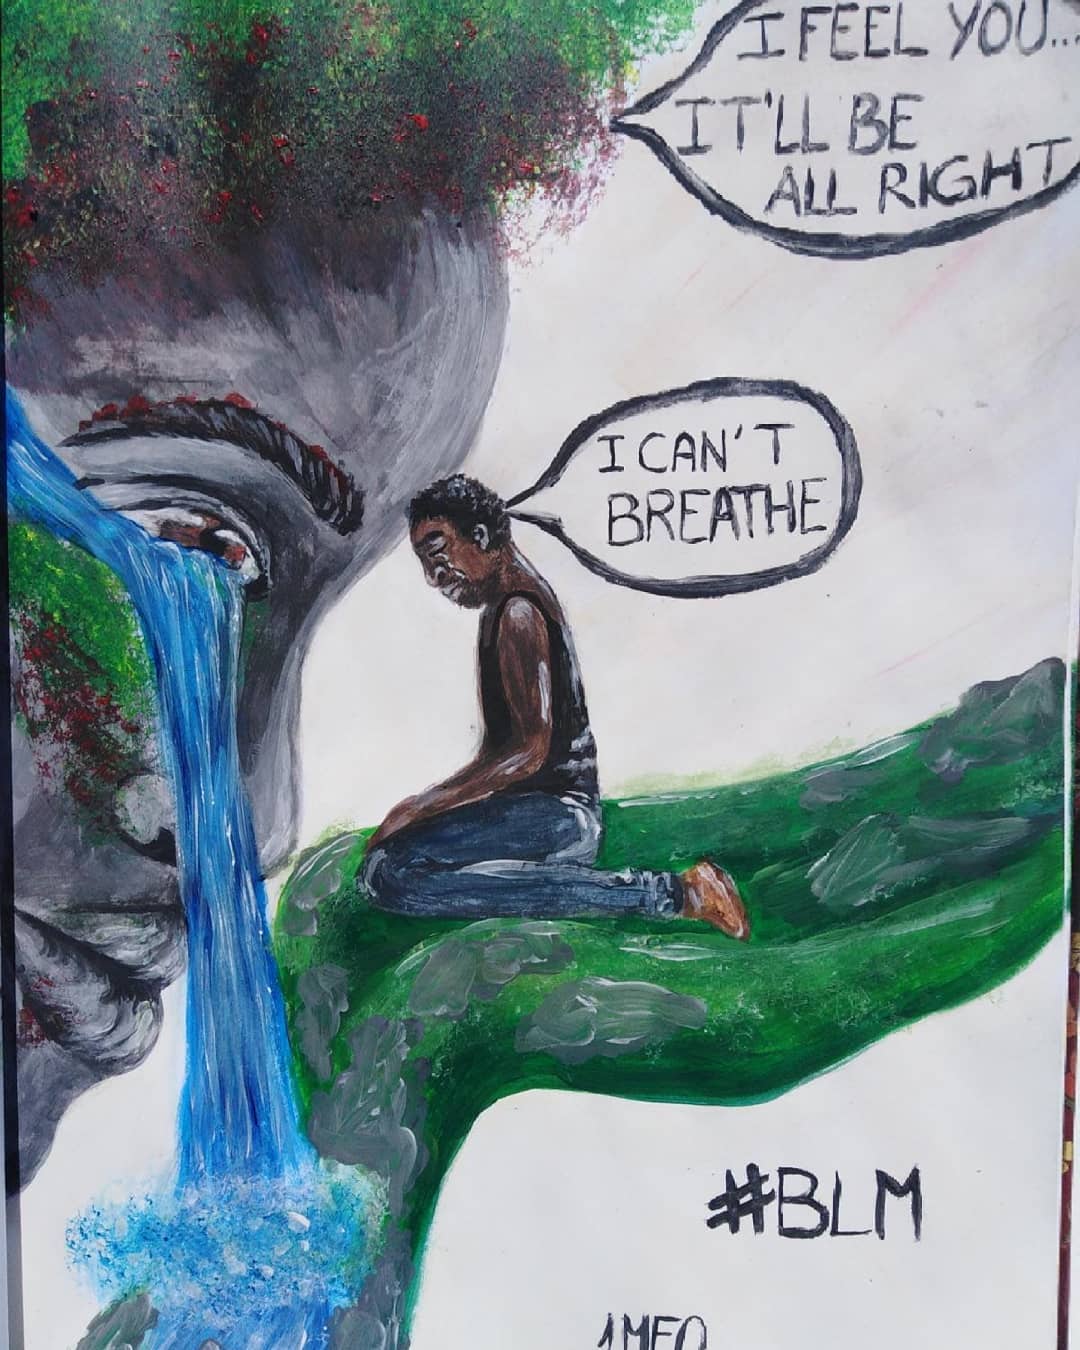 I FEEL YOU...
IT'LL BE
ALL RIGHT
I CAN'T
BREATHE
#BLM